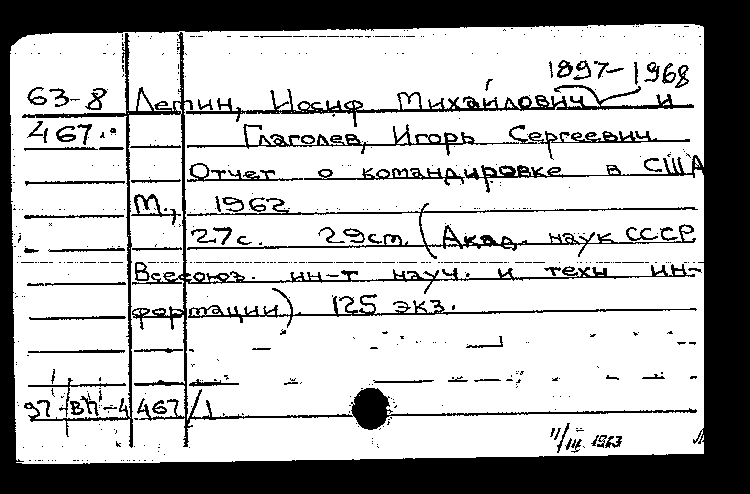 1897-1968
63-8 Летин, Иосиф Михайлович и
467 Глаголев, Игорь Сергеевич
Отчет о командировке в США
М., 1962
27с. 29см. (Акад. наук СССР
Всесоюз. ин-т науч. и техн ин-
формации). 125 экз.
97-ВП-4 467/1
11/III 1963